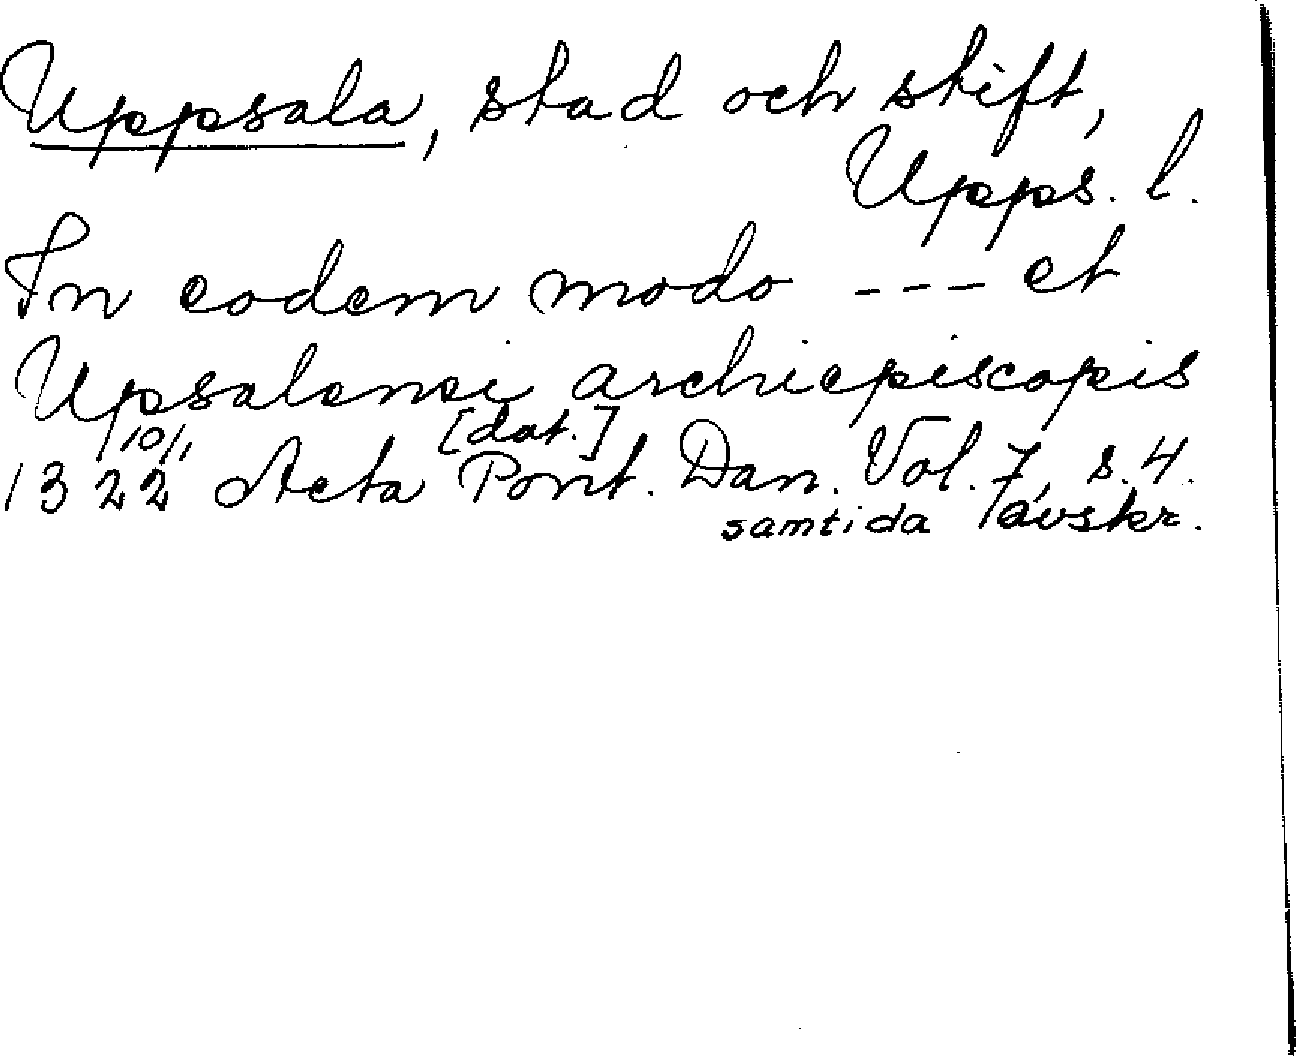 Uppsala, stad och stift,
Upps. l.
In eodem modo --- et
Upsalensi archiepiscopis
[dat.]
1322 10/1 Acta Pont. Dan. Vol. 7, s. 4.
samtida avskr.